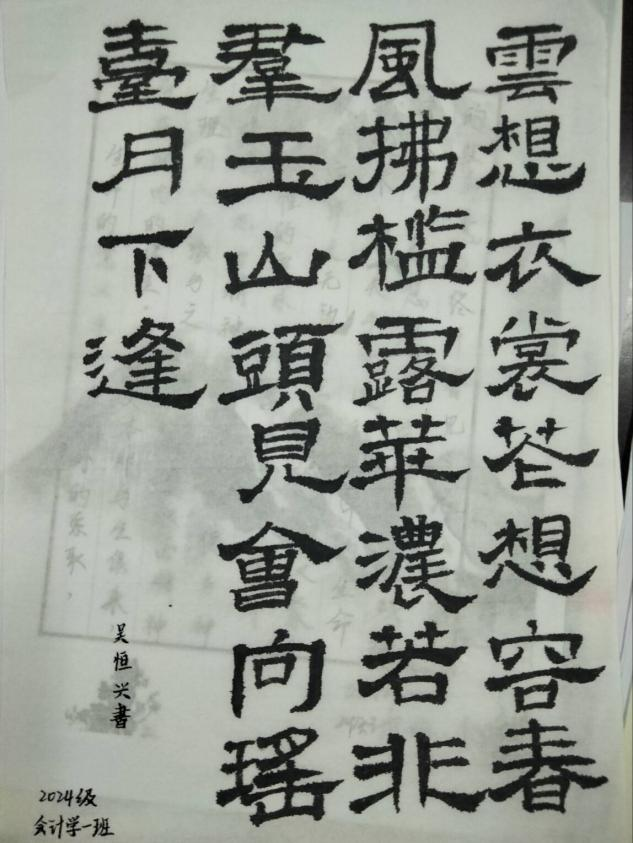 雲想衣裳芲想容春
風拂檻露華濃若非
羣玉山頭見會向瑤
臺月下逢
吴恒兴書
2024级
会计学一班